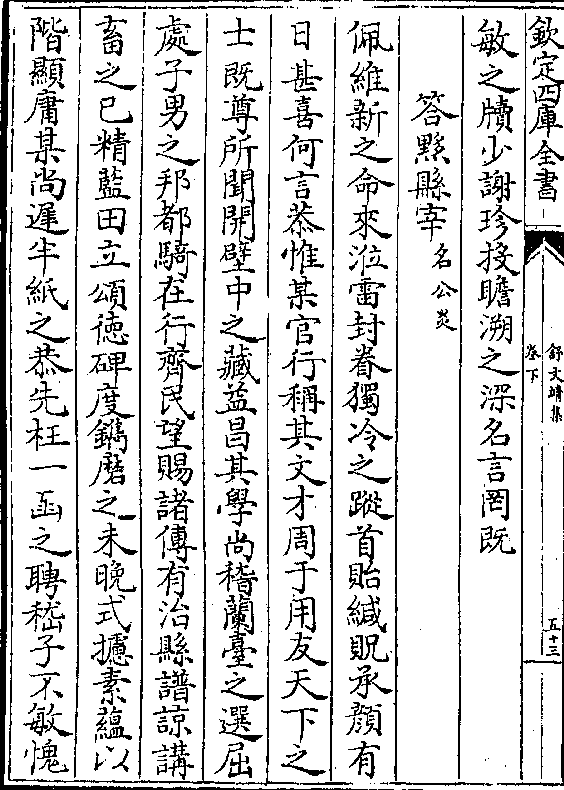 欽定四庫全書
舒文靖集
卷下
五十三
敏之牘少謝珍投瞻溯之深名言罔既
答黟縣宰名公炎
佩維新之命來涖雷封眷獨冷之蹤首貽緘貺承顔有
日甚喜何言恭惟某官行稱其文才周于用友天下之
士既尊所聞開壁中之藏益昌其學尚稽蘭臺之選屈
處子男之邦都騎在行齊民望賜諸傅有治縣譜諒講
畜之已精藍田立頌徳碑度鐫磨之未晚式攄素蘊以
階顯庸某尚遲半紙之恭先枉一函之聘嵇子不敏愧